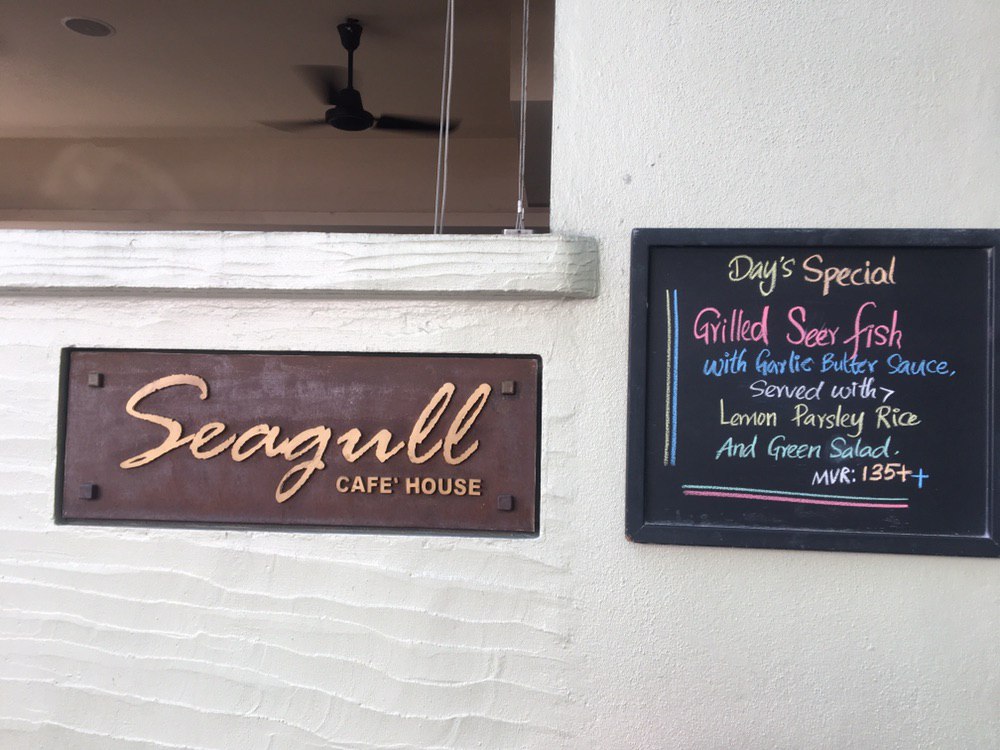 Seagull
CAFE' HOUSE
Day's Special
Grilled Seer fish
with Garlic Butter Sauce,
Served with >
Lemon Parsley Rice
And Green Salad.
MVR: 135++